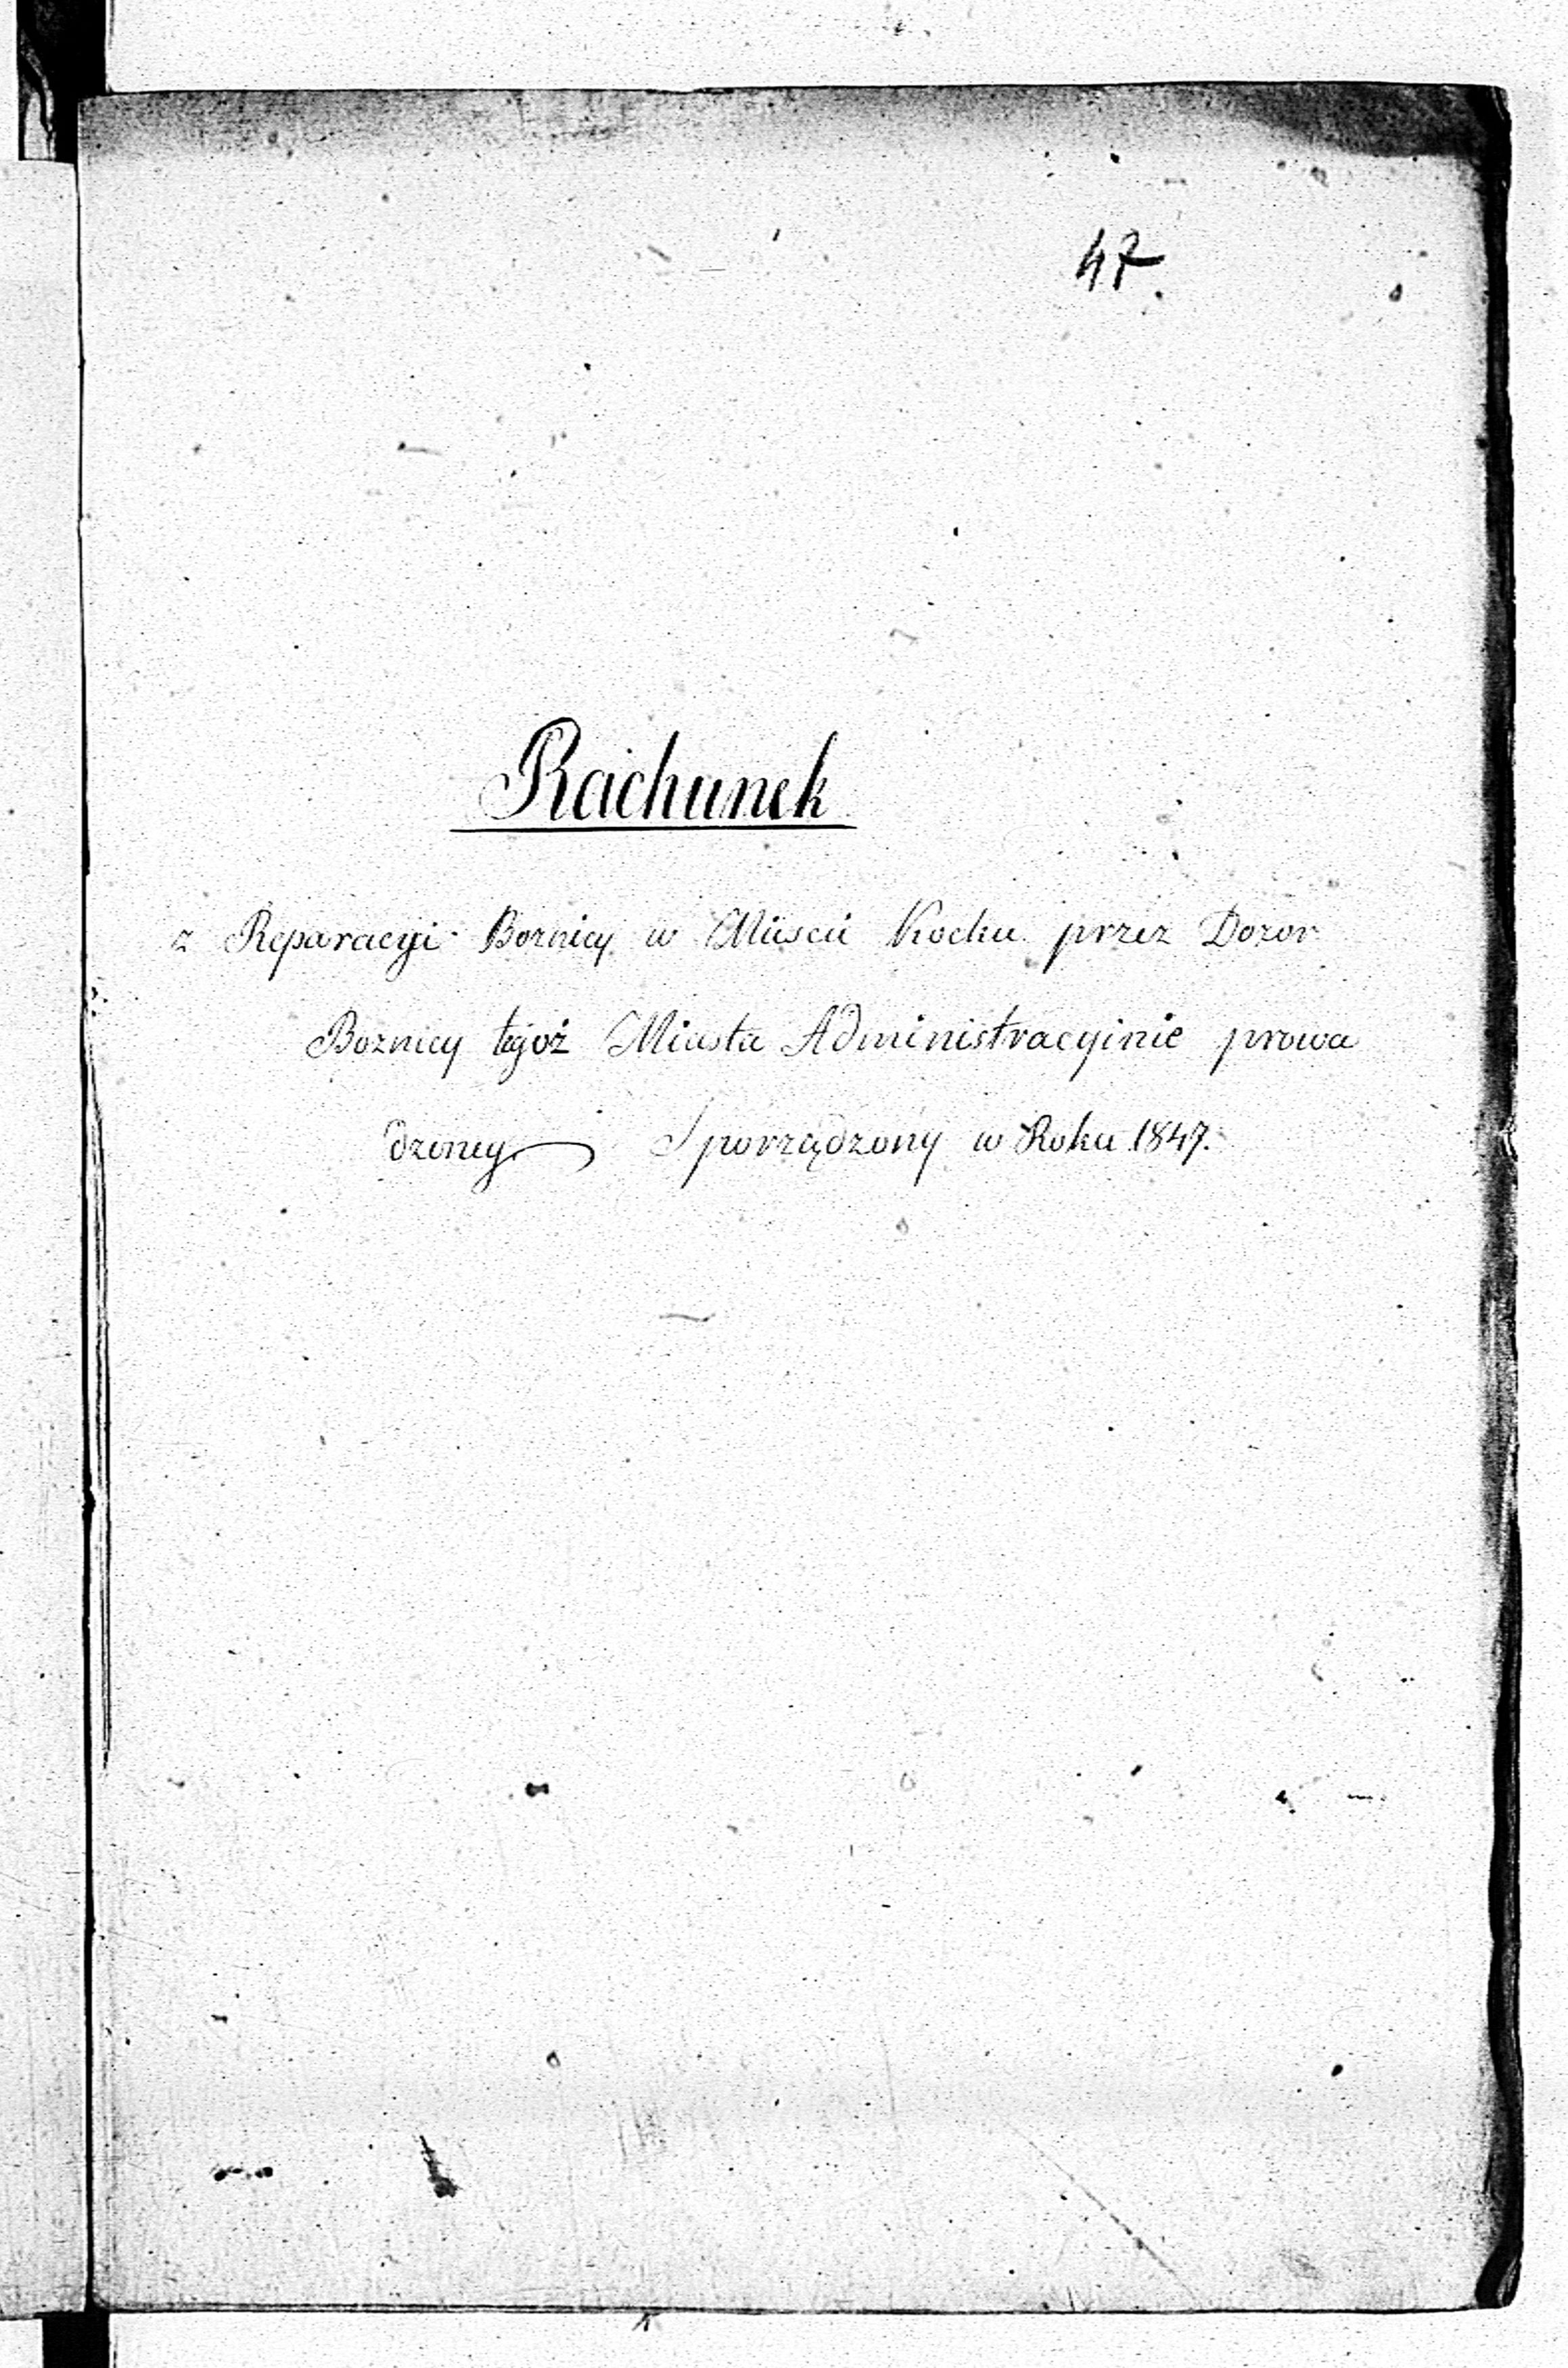 47.
Rachunek
z Reparacyi Boznicy w Miescie Kocku przez Dozor
Boznicy tegoż Miasta Administracyinie prowa
dzoney Sporządzony w Roku 1847.